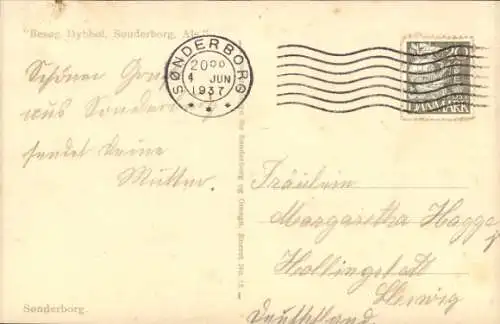 "Besøg Dybbøl, Sønderborg, Als"
Schönen Gruß
aus Sonderburg
sendet deine
Mutter.
SØNDERBORG
20 00
4 JUN
1937
* * *
DANMARK
for Sønderborg og Omegn. Eneret No.
Fräulein
Margaretha Hagge
Hollingstedt
Schleswig
Deutschland
Sønderborg.